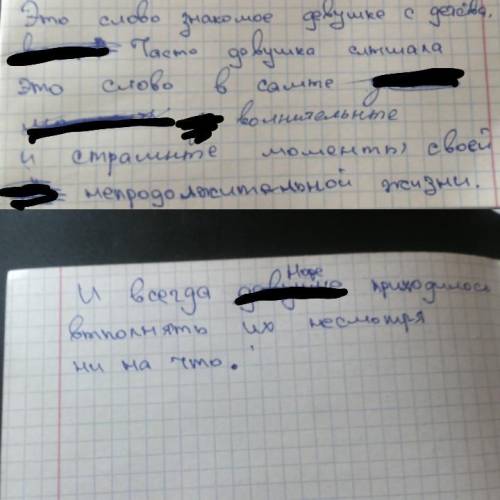 Это слово знакомое девушке с детства.
Часто девушка слышала
это слово в самые
волнительные
и страшные моменты своей
непродолжительной жизни.
И всегда Наде приходилось
выполнять их несмотря
ни на что.